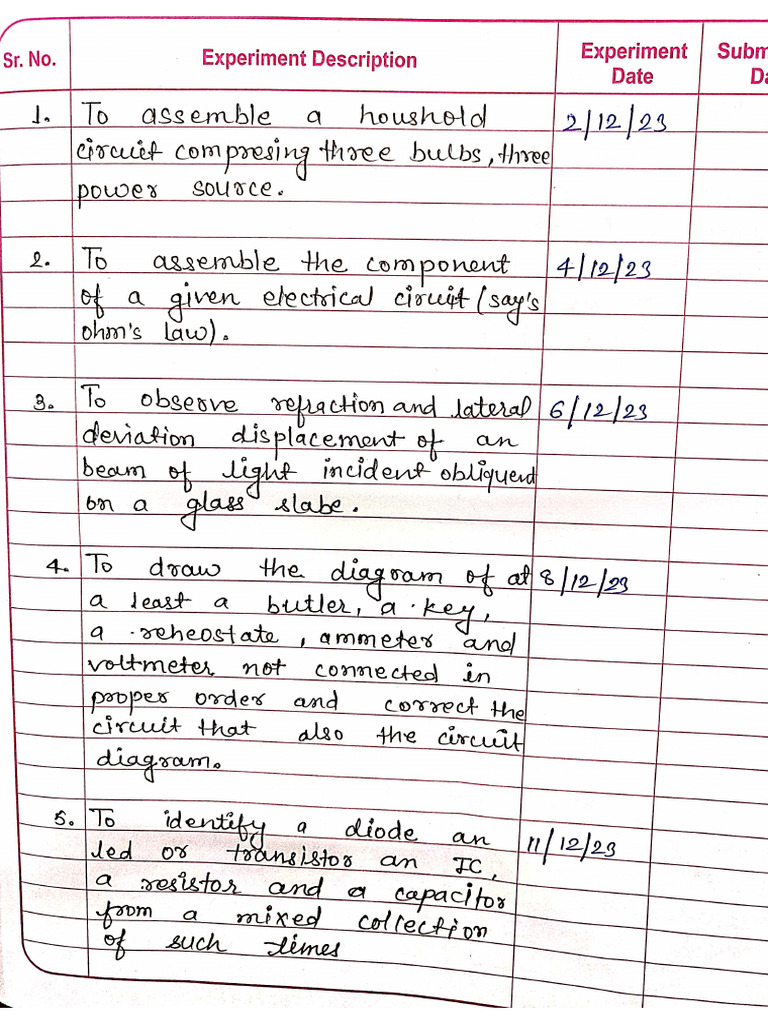 Sr. No. Experiment Description Experiment Date Subm Da
1. To assemble a houshold 2/12/23
circuit compresing three bulbs, three
power source.
2. To assemble the component 4/12/23
of a given electrical circuit (say's
ohm's law).
3. To observe refraction and lateral 6/12/23
deviation displacement of an
beam of light incident obliquend
on a glass slabe.
4. To draw the diagram of at 8/12/23
a least a butler, a key,
a reheostate, ammeter and
voltmeter not connected in
proper order and correct the
circuit that also the circuit
diagram.
5. To identify a diode an 11/12/23
led or transistor an IC,
a resistor and a capacitor
from a mixed collection
of such times